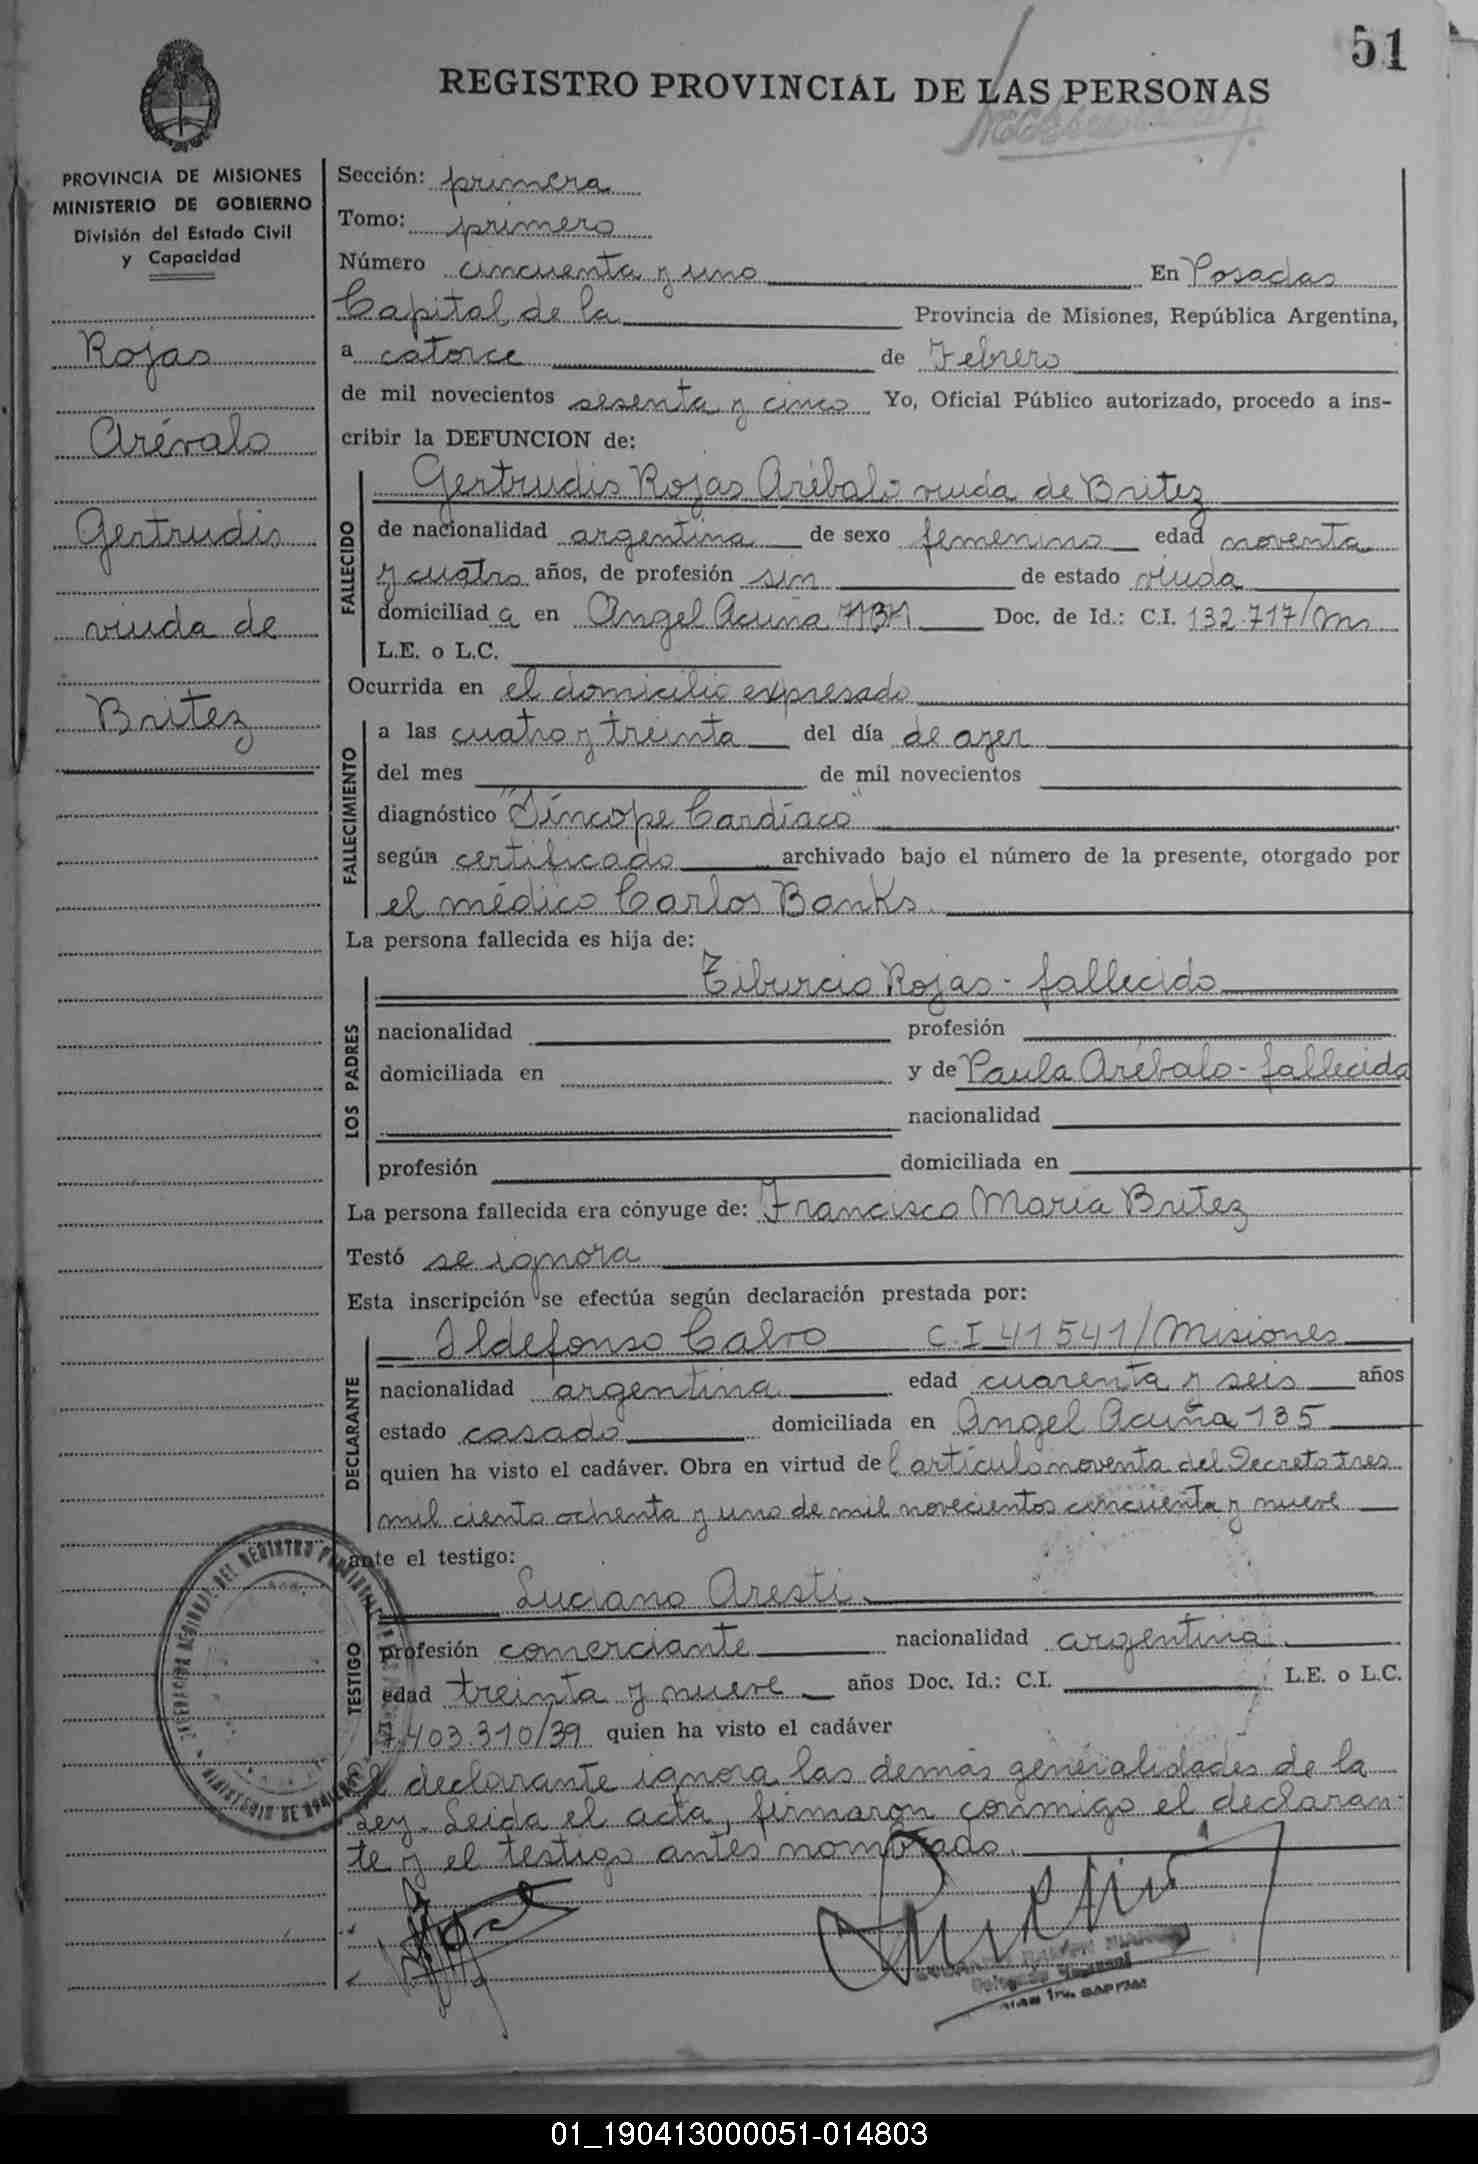 51
REGISTRO PROVINCIAL DE LAS PERSONAS
PROVINCIA DE MISIONES
MINISTERIO DE GOBIERNO
División del Estado Civil
y Capacidad
Rojas
Arévalo
Gertrudis
viuda de
Britez
Sección: primera
Tomo: primero
Número cincuenta y uno En Posadas
Capital de la Provincia de Misiones, República Argentina,
a catorce de Febrero
de mil novecientos sesenta y cinco Yo, Oficial Público autorizado, procedo a ins-
cribir la DEFUNCION de:
FALLECIDO
Gertrudis Rojas Arébalo viuda de Britez
de nacionalidad argentina de sexo femenino edad noventa
y cuatro años, de profesión sin de estado viuda
domiciliad a en Angel Acuña Doc. de Id.: C.I. 132.717/Ms
L.E. o L.C.
Ocurrida en el domicilio expresado
FALLECIMIENTO
a las cuatro y treinta del día de ayer
del mes de mil novecientos
diagnóstico "Síncope Cardíaco"
según certificado archivado bajo el número de la presente, otorgado por
el médico Carlos Banks.
La persona fallecida es hija de:
LOS PADRES
Tiburcio Rojas - fallecido
nacionalidad profesión
domiciliada en y de Paula Arébalo - fallecida
nacionalidad
profesión domiciliada en
La persona fallecida era cónyuge de: Francisco María Britez
Testó se ignora
Esta inscripción se efectúa según declaración prestada por:
DECLARANTE
Ildefonso Calvo C.I 41541/Misiones
nacionalidad argentina edad cuarenta y seis años
estado casado domiciliada en Angel Acuña 135
quien ha visto el cadáver. Obra en virtud de l artículo noventa del Decreto tres
mil ciento ochenta y uno de mil novecientos cincuenta y nueve
ante el testigo:
TESTIGO
Luciano Aresti
profesión comerciante nacionalidad argentina
edad treinta y nueve años Doc. Id.: C.I. L.E. o L.C.
7.403.310/39 quien ha visto el cadáver
El declarante ignora las demás generalidades de la
Ley. Leida el acta, firmaron conmigo el declaran-
te y el testigo antes nombrado.
DEL REGISTRO
01_190413000051-014803